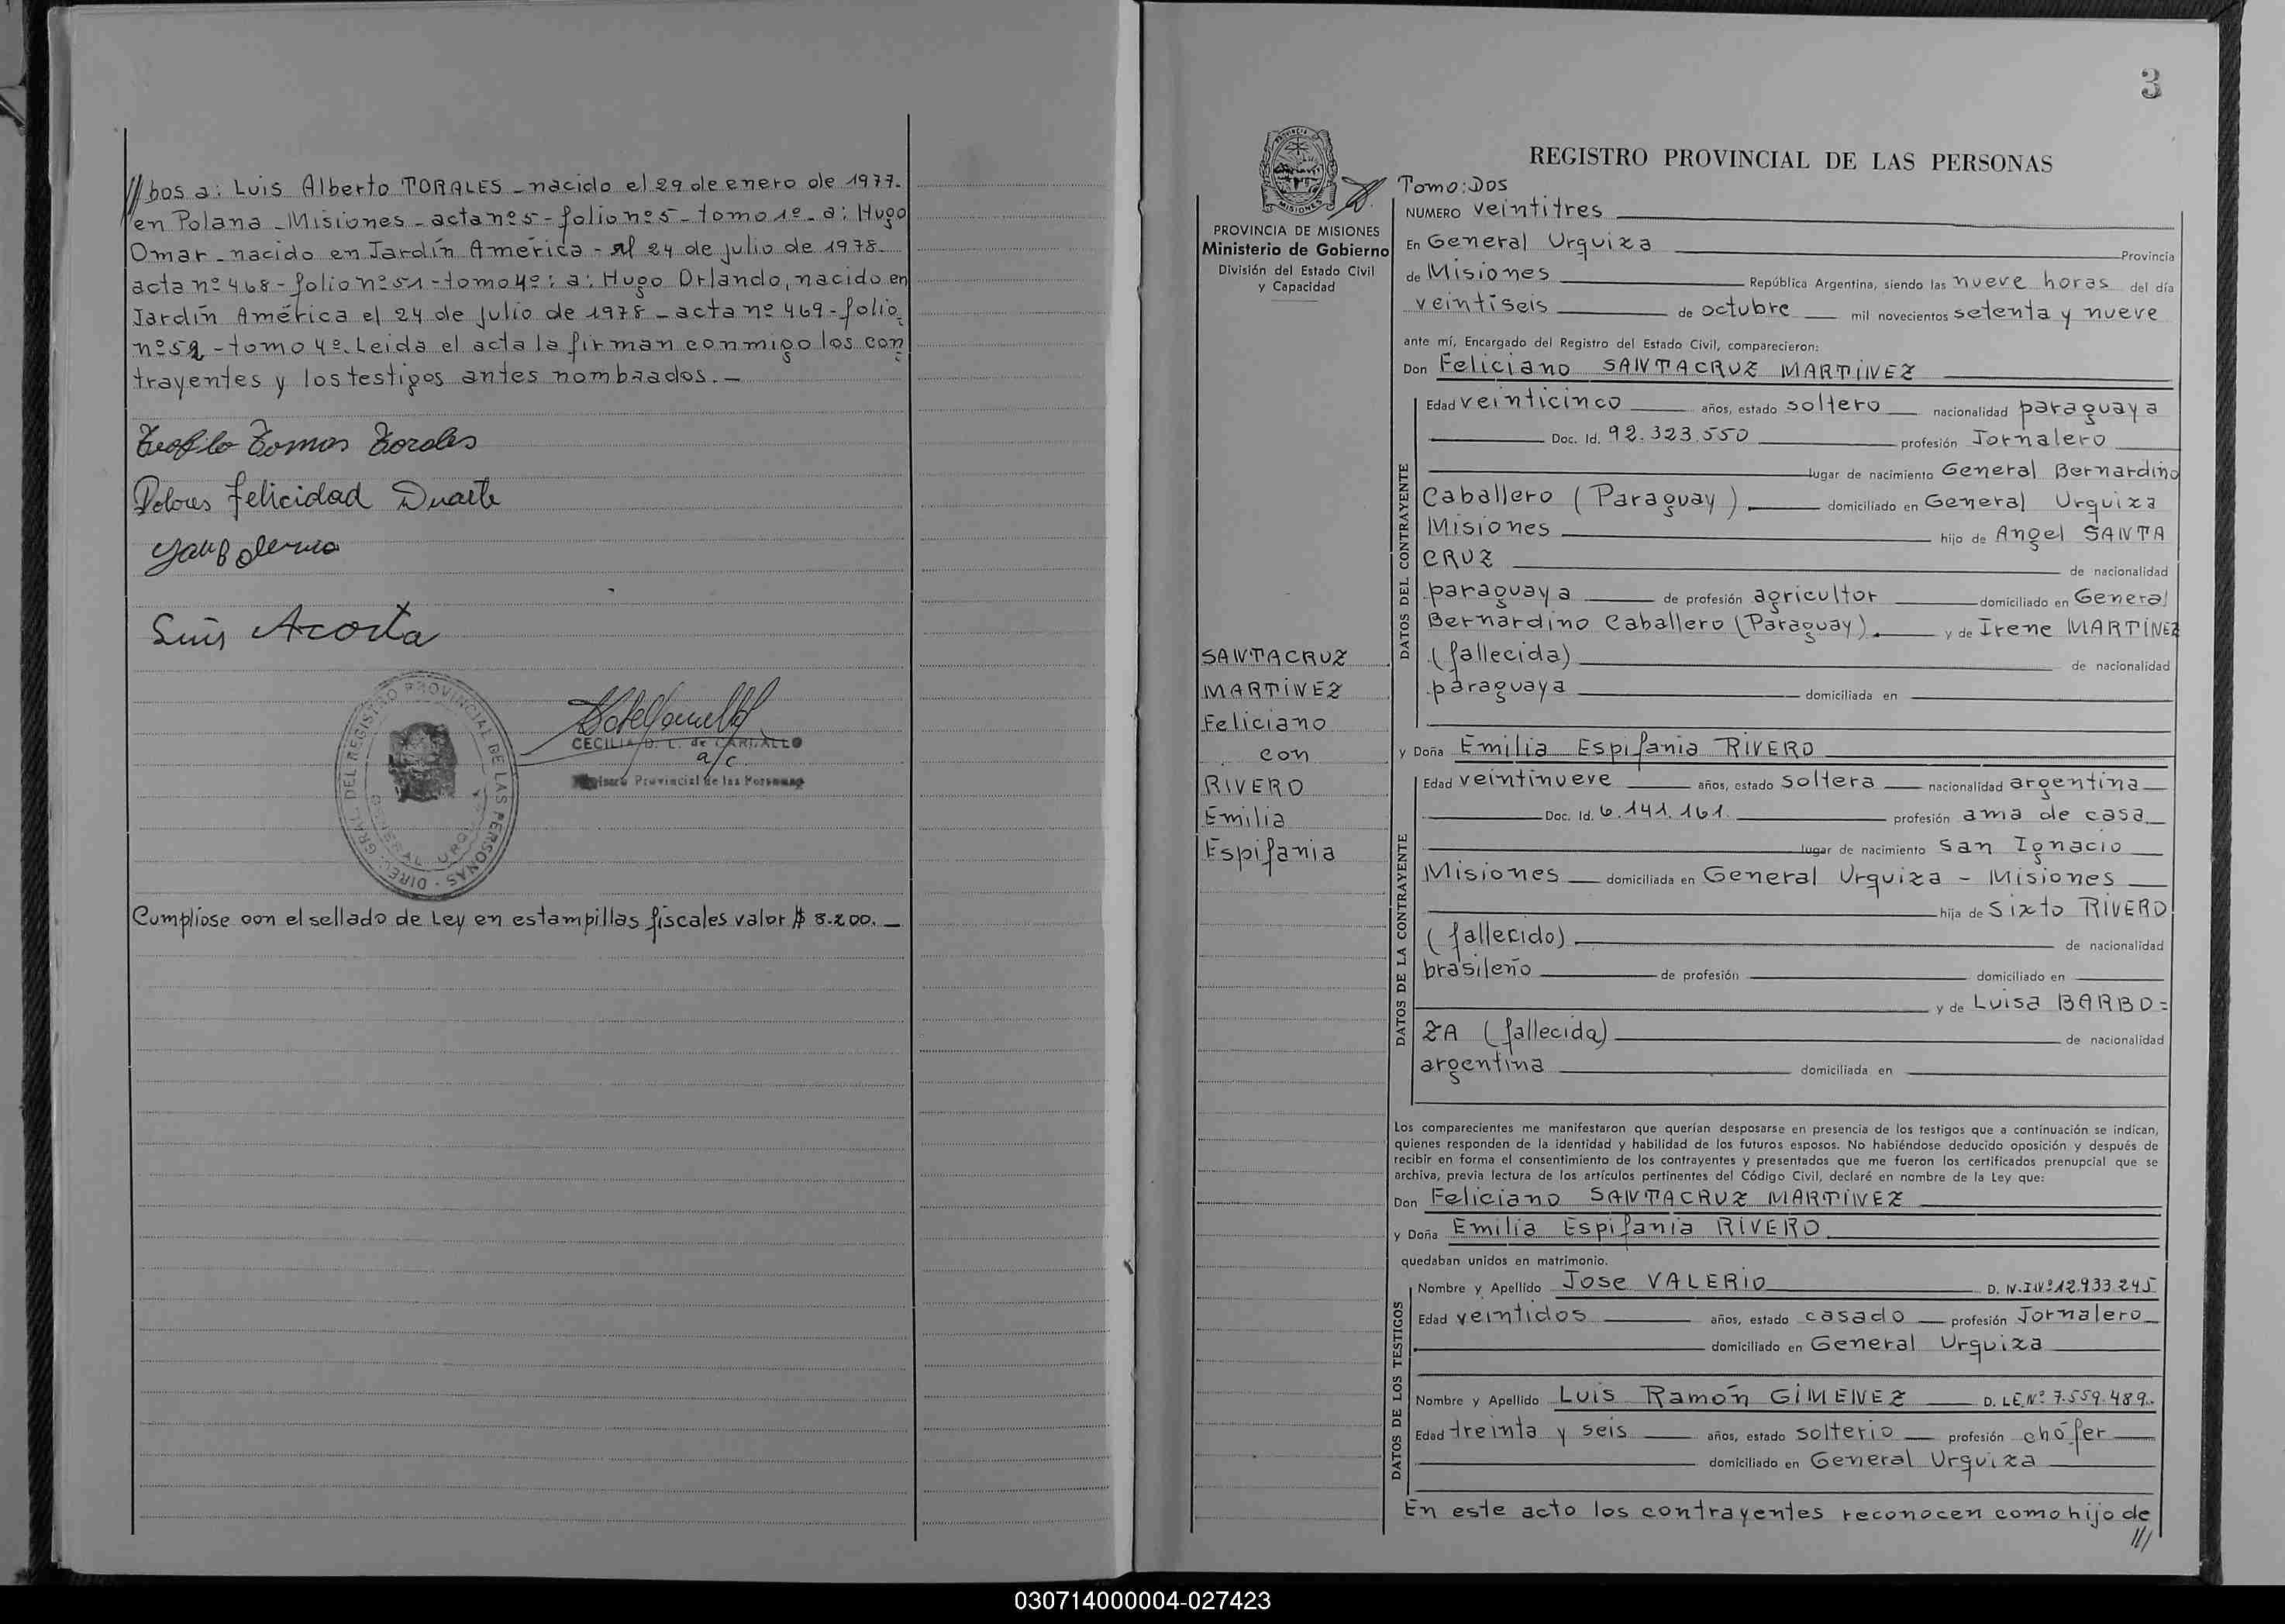 //bos a: Luis Alberto TORALES - nacido el 29 de enero de 1977.
en Polana - Misiones - acta nº 5 - folio nº 5 - tomo 1º - a: Hugo
Omar - nacido en Jardín América - el 24 de julio de 1978.
acta nº 468 - folio nº 51 - tomo 4º; a: Hugo Orlando, nacido en
Jardín América el 24 de julio de 1978 - acta nº 469 - folio
nº 52 - tomo 4º. Leida el acta la firman conmigo los con
trayentes y los testigos antes nombrados. -
Teofilo Tomas Torales
Dolores Felicidad Duarte
Luis Acosta
DIREC. GRAL. DEL REGISTRO PROVINCIAL DE LAS PERSONAS
GENERAL URQUIZA
CECILIA D. L. de CARBALLO
a/c
Registro Provincial de las Personas
Cumpliose con el sellado de Ley en estampillas fiscales valor $ 8.200. -
3
REGISTRO PROVINCIAL DE LAS PERSONAS
PROVINCIA DE MISIONES
Ministerio de Gobierno
División del Estado Civil
y Capacidad
SANTACRUZ
MARTINEZ
Feliciano
con
RIVERO
Emilia
Espifania
Tomo: Dos
NUMERO veintitres
En General Urquiza Provincia
de Misiones República Argentina, siendo las nueve horas del día
veintiseis de octubre mil novecientos setenta y nueve
ante mí, Encargado del Registro del Estado Civil, comparecieron:
Don Feliciano SANTACRUZ MARTINEZ
DATOS DEL CONTRAYENTE
Edad veinticinco años, estado soltero nacionalidad paraguaya
Doc. Id. 92.323.550 profesión Jornalero
lugar de nacimiento General Bernardino
Caballero (Paraguay). domiciliado en General Urquiza
Misiones hijo de Angel SANTA
CRUZ de nacionalidad
paraguaya de profesión agricultor domiciliado en General
Bernardino Caballero (Paraguay). y de Irene MARTÍNEZ
(fallecida) de nacionalidad
paraguaya domiciliada en
y Doña Emilia Espifania RIVERO
DATOS DE LA CONTRAYENTE
Edad veintinueve años, estado soltera nacionalidad argentina
Doc. Id. 6.141.161. profesión ama de casa
lugar de nacimiento San Ignacio
Misiones domiciliada en General Urquiza - Misiones
hija de Sixto RIVERO
(fallecido) de nacionalidad
brasileño de profesión domiciliado en
y de Luisa BARBO=
ZA (fallecida) de nacionalidad
argentina domiciliada en
Los comparecientes me manifestaron que querían desposarse en presencia de los testigos que a continuación se indican,
quienes responden de la identidad y habilidad de los futuros esposos. No habiéndose deducido oposición y después de
recibir en forma el consentimiento de los contrayentes y presentados que me fueron los certificados prenupcial que se
archiva, previa lectura de los artículos pertinentes del Código Civil, declaré en nombre de la Ley que:
Don Feliciano SANTACRUZ MARTINEZ
y Doña Emilia Espifania RIVERO
quedaban unidos en matrimonio.
DATOS DE LOS TESTIGOS
Nombre y Apellido Jose VALERIO D. N.I.Nº 12.933.245
Edad veintidos años, estado casado profesión Jornalero
domiciliado en General Urquiza
Nombre y Apellido Luis Ramón GIMENEZ D. L.E.Nº 7.559.489.
Edad treinta y seis años, estado solterio profesión chófer
domiciliado en General Urquiza
En este acto los contrayentes reconocen como hijo de
///
030714000004-027423